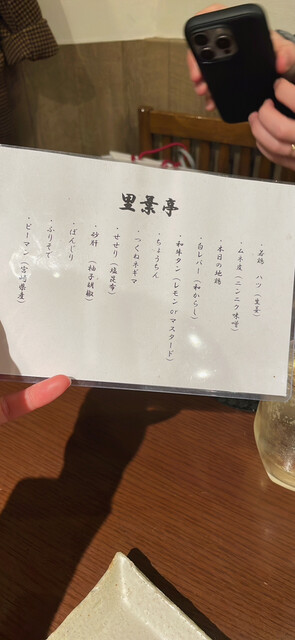 里葉亭
・若鶏 ハツ(生姜)
・ムネ皮(ニンニク味噌)
・本日の地鶏
・白レバー(和からし)
・和牛タン(レモンorマスタード)
・ちょうちん
・つくねネギマ
・せせり(塩昆布)
・砂肝(柚子胡椒)
・ぼんじり
・ふりそで
・ピーマン(宮崎県産)